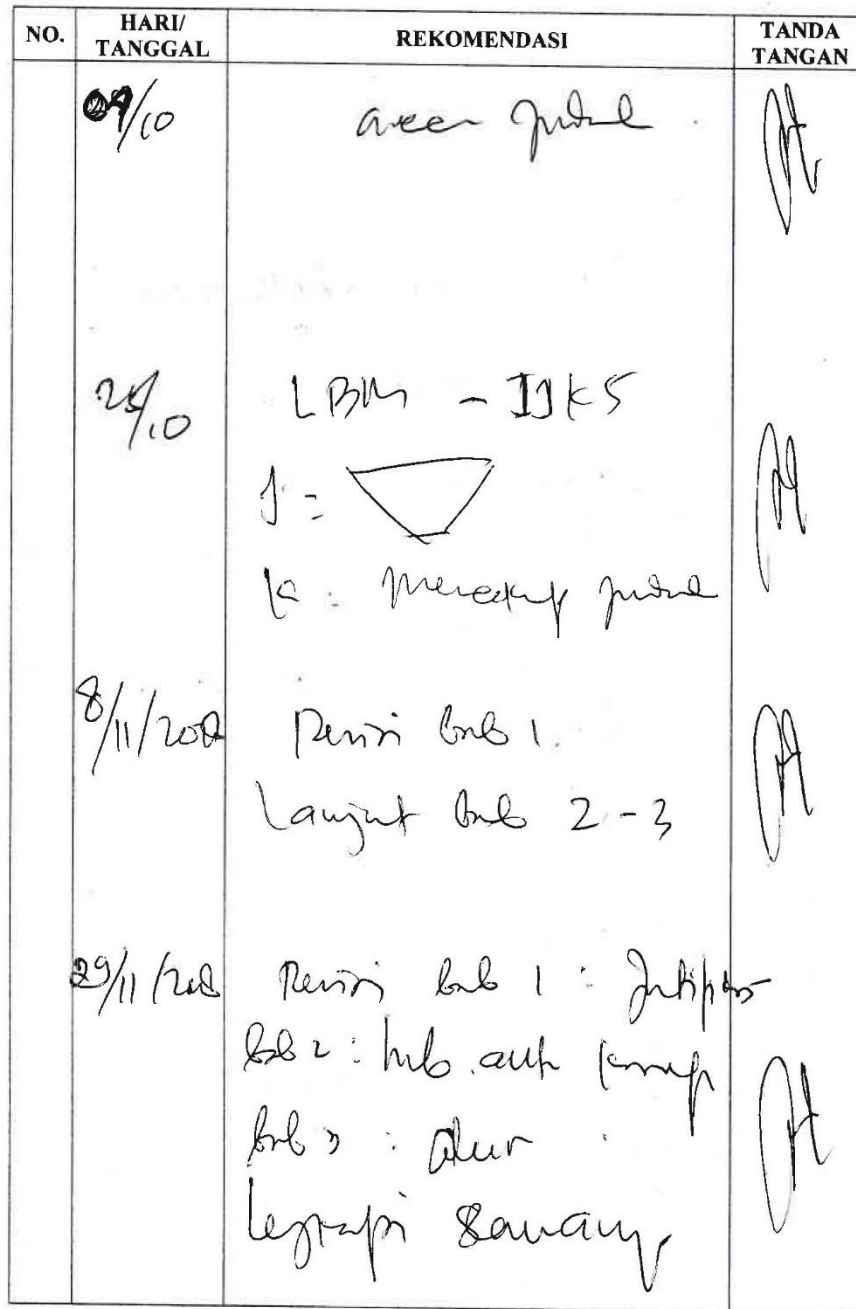 NO. HARI/ TANGGAL REKOMENDASI TANDA TANGAN
09/10 acc judul
25/10 LBM - IJKS
J =
K : Mencakup judul
8/11/2018 Revisi bab 1
Lanjut bab 2-3
29/11/2018 Revisi bab 1 : Justifikasi
bab 2 : hub. antr konsep
bab 3 : Alur
Lengkapi